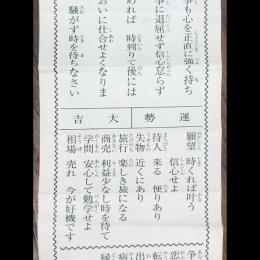 事も心を正直に強く持ち
事に退屈せず信心怠らず
めれば 時到りて後には
おいに仕合せよくなりま
騒がず時を待ちなさい
運勢
大吉
願望 時くれば叶う
信心せよ
待人 来る 便りあり
失物 近くにあり
旅行 楽しき旅になる
商売 利益少なし時を待て
学問 安心して勉学せよ
相場 売れ 今が好機です
争
恋
転
出
病
縁